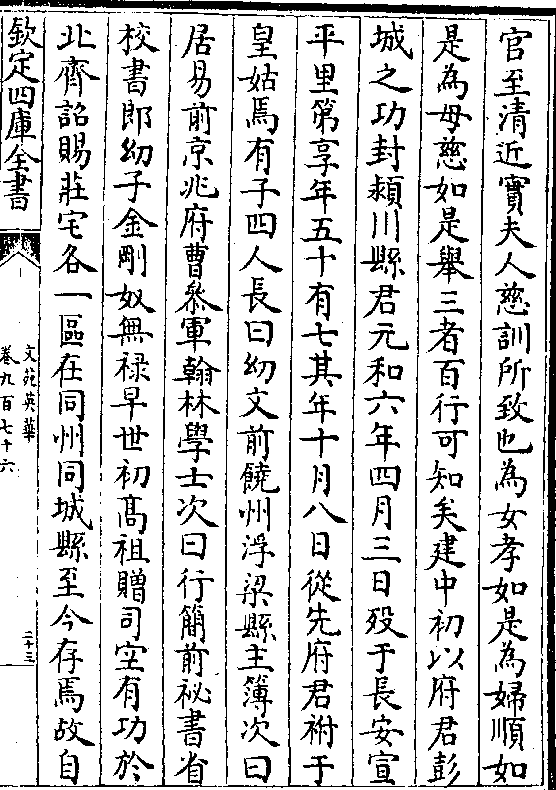 官至清近實夫人慈訓所致也為女孝如是為婦順如
是為母慈如是舉三者百行可知矣建中初以府君彭
城之功封潁川縣君元和六年四月三日歿于長安宣
平里第享年五十有七其年十月八日從先府君祔于
皇姑焉有子四人長曰幼文前饒州浮梁縣主簿次曰
居易前京兆府曹叅軍翰林學士次曰行簡前祕書省
校書郎幼子金剛奴無禄早世初髙祖贈司空有功於
北齊詔賜莊宅各一區在同州同城縣至今存焉故自
欽定四庫全書
文苑英華
卷九百七十六
二十三